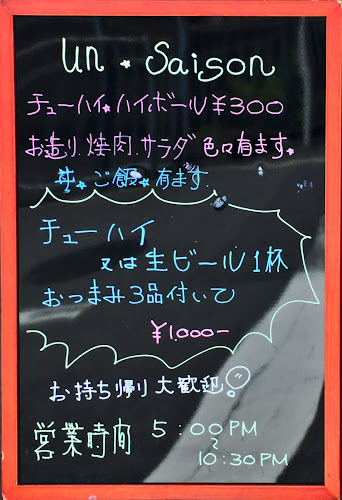 un・Saison
チューハイ・ハイボール ¥300
お造り.焼肉.サラダ 色々有ます。
丼・ご飯・有ます.
チューハイ
又は生ビール1杯
おつまみ3品付いて
¥1,000-
お持ち帰り大歓迎!
営業時間 5:00PM
~
10:30PM